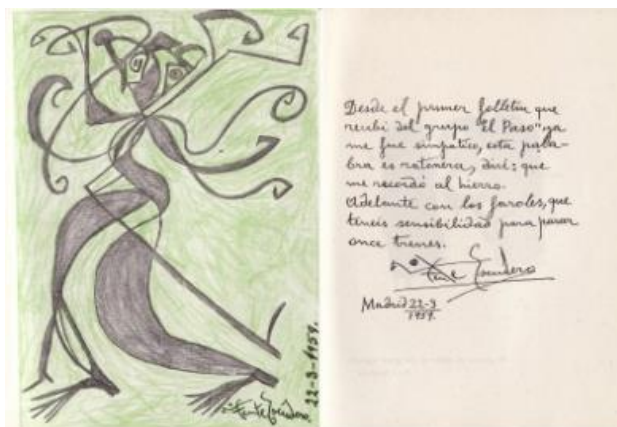 22-3-1959.
Vicente Escudero
Desde el primer folletin que
recibi del grupo "El Paso" ya
me fue simpatico, esta pala-
bra es ratonera, diré; que
me recordó al hierro.
Adelante con los faroles, que
teneis sensibilidad para parar
once trenes.
Vicente Escudero
Madrid 22-3
1959.